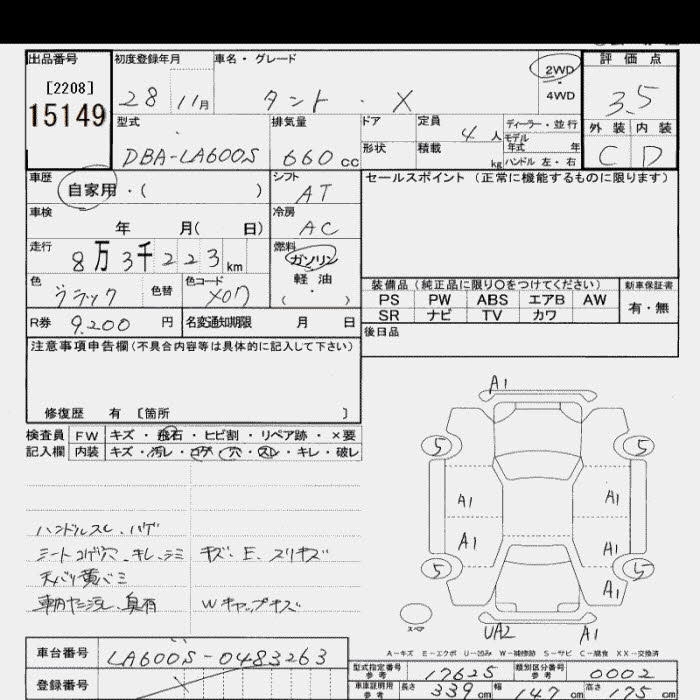 出品番号 初度登録年月 車名・グレード 2WD 4WD 評価点
[2208] 28 11月 タント・X 3.5
15149
型式 排気量 ドア 定員 4人 ディーラー・並行 外装 内装
DBA-LA600S 660cc 形状 積載 kg モデル年式 年 ハンドル 左・右 C D
車歴 自家用・( ) シフト AT セールスポイント (正常に機能するものに限ります)
車検 年 月( 日) 冷房 AC
走行 8万3千223km 燃料 ガソリン 軽油 ( ・ )
色 ブラック 色替 色コード X07 装備品(純正品に限り○をつけてください) 新車保証書
PS PW ABS エアB AW 有・無
SR ナビ TV カワ
R券 9,200円 名変通知期限 月 日 後日品
注意事項申告欄(不具合内容等は具体的に記入して下さい)
修復歴 有 [箇所 ]
検査員 FW キズ・飛石・ヒビ割・リペア跡・×要
記入欄 内装 キズ・汚レ・コゲ・穴・スレ・キレ・破レ
ハンドルスレ、ハゲ
シートコゲ穴、キレ、シミ キズ、E、スリキズ
天バリ黄バミ
車内ヤニ汚レ、臭有 Wキャップキズ
A1
5 5
A1 A1
A1 A1
5 5
A1
スペア UA2 A1
A-キズ E-エクボ U-凹み W-補修跡 S-サビ C-腐食 XX-交換済
車台番号 LA600S-0483263
登録番号
型式指定番号 参考 17625 類別区分番号 参考 0002
車車証明用 参考 長さ 339cm 幅 147cm 高さ 175cm